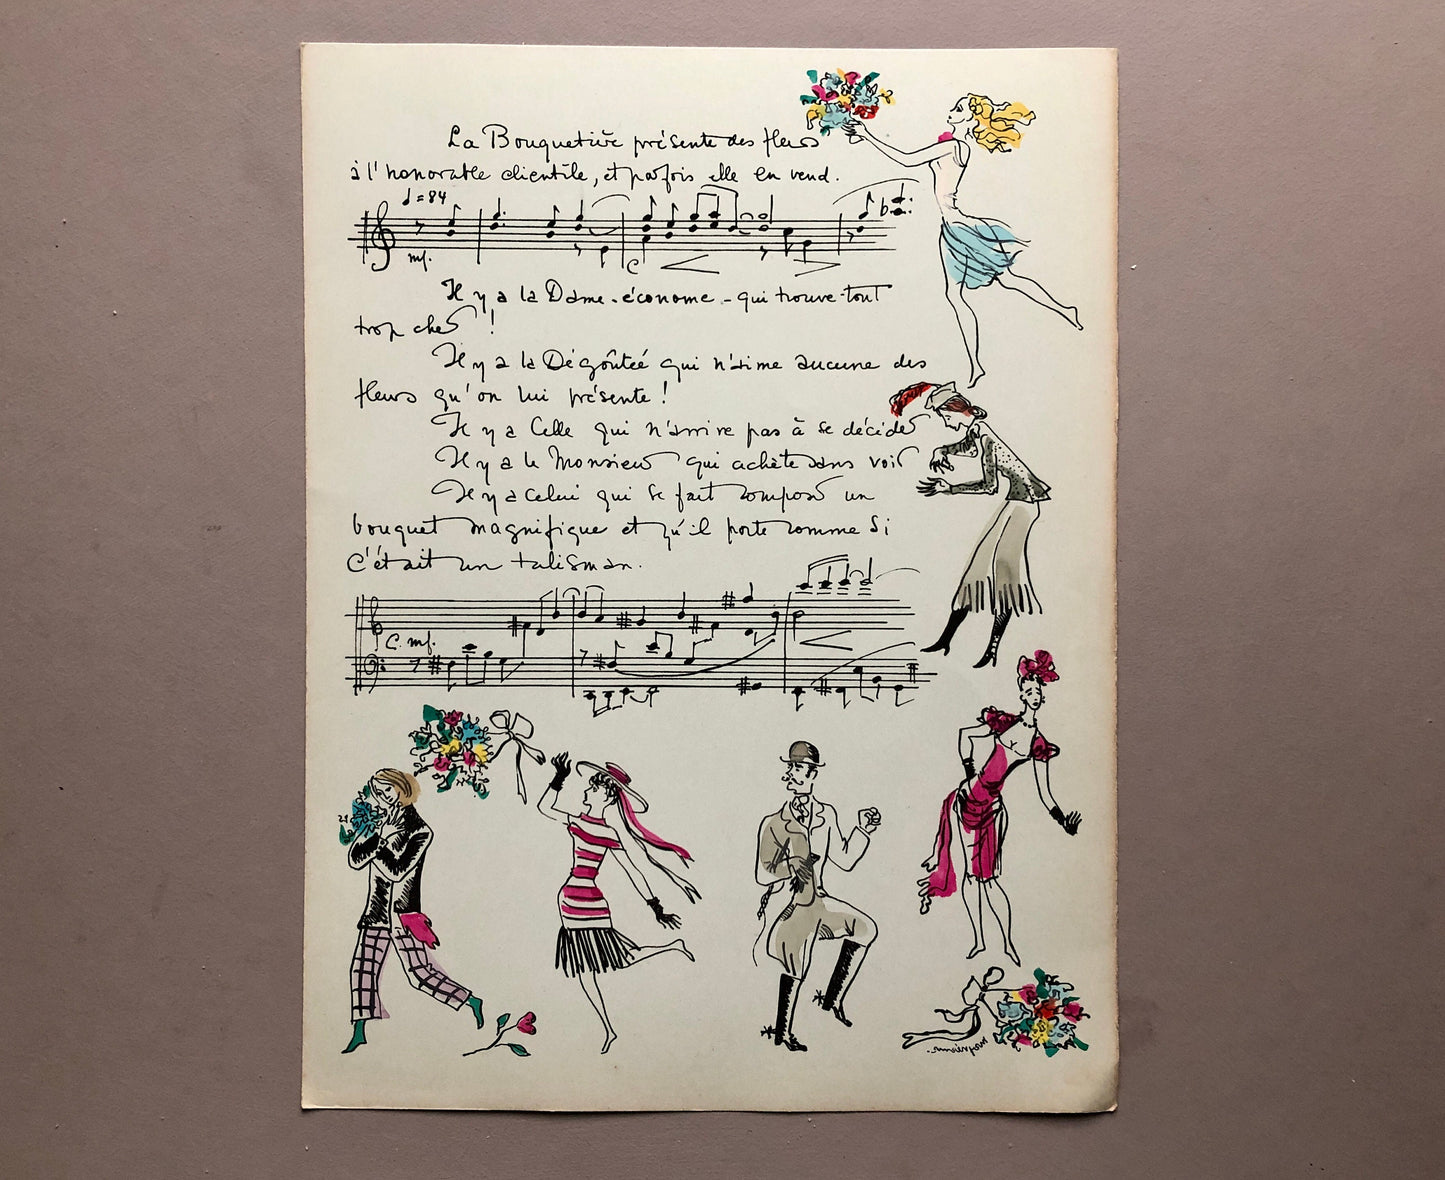 La Bouquetière présente des fleurs
à l'honorable clientèle, et parfois elle en vend.
♩=84
mf.
Il y a la Dame-économe - qui trouve tout
trop cher !
Il y a la Dégoûtée qui n'aime aucune des
fleurs qu'on lui présente !
Il y a Celle qui n'arrive pas à se décider
Il y a le Monsieur qui achète sans voir
Il y a celui qui se fait composer un
bouquet magnifique et qu'il porte comme si
c'était un talisman.
C. mf.